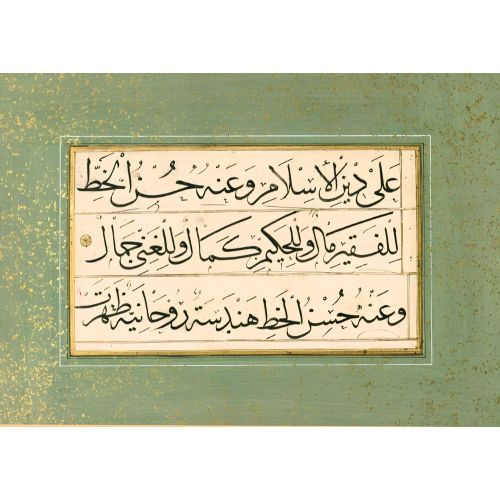 على دين الإسلام وعنه حسن الخط
للفقير مال وللحكيم كمال وللغني جمال
وعنه حسن الخط هندسة روحانية ظهرت